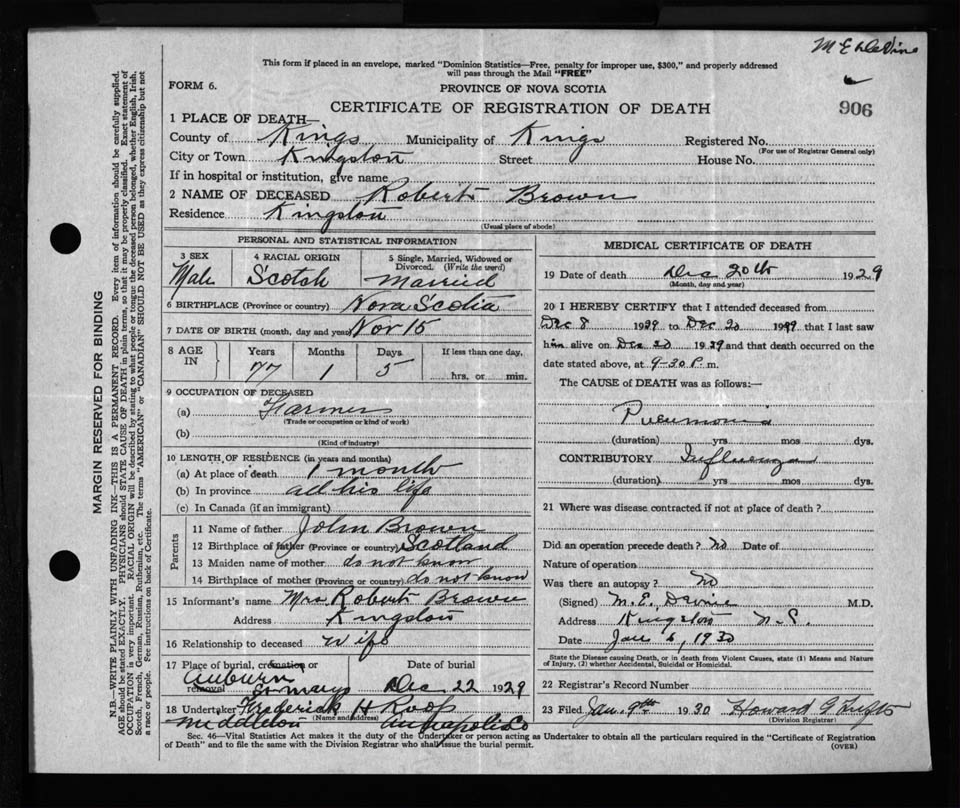 This form if placed in an envelope, marked "Dominion Statistics—Free, penalty for improper use, $300," and properly addressed
will pass through the Mail "FREE"
FORM 6.
PROVINCE OF NOVA SCOTIA
CERTIFICATE OF REGISTRATION OF DEATH
906
1 PLACE OF DEATH—
County of Kings Municipality of Kings Registered No.
(For use of Registrar General only)
City or Town Kingston Street House No.
If in hospital or institution, give name
2 NAME OF DECEASED Robert Brown
Residence Kingston
(Usual place of abode)
PERSONAL AND STATISTICAL INFORMATION
3 SEX 4 RACIAL ORIGIN 5 Single, Married, Widowed or
Divorced. (Write the word)
Male Scotch Married
6 BIRTHPLACE (Province or country) Nova Scotia
7 DATE OF BIRTH (month, day and year) Nov 15
8 AGE IN Years Months Days If less than one day,
77 1 5 hrs. or min.
9 OCCUPATION OF DECEASED
(a) Farmer
(Trade or occupation or kind of work)
(b)
(Kind of industry)
10 LENGTH OF RESIDENCE (in years and months)
(a) At place of death 1 month
(b) In province all his life
(c) In Canada (if an immigrant)
Parents
11 Name of father John Brown
12 Birthplace of father (Province or country) Scotland
13 Maiden name of mother do not know
14 Birthplace of mother (Province or country) do not know
15 Informant's name Mrs Robert Brown
Address Kingston
16 Relationship to deceased Wife
17 Place of burial, cremation or Date of burial
Auburn
removal St marys Dec 22 1929
18 Undertaker Frederick H Roop
(Name and address)
Middleton Annapolis Co
MEDICAL CERTIFICATE OF DEATH
19 Date of death Dec 20th 1929
(Month, day and year)
20 I HEREBY CERTIFY that I attended deceased from
Dec 8 1929 to Dec 20 1929 that I last saw
him alive on Dec 20 1929 and that death occurred on the
date stated above, at 9-30 P. m.
The CAUSE of DEATH was as follows:—
Pneumonia
(duration) yrs mos dys.
CONTRIBUTORY Influenza
(duration) yrs mos dys.
21 Where was disease contracted if not at place of death?
Did an operation precede death? No Date of
Nature of operation
Was there an autopsy? No
(Signed) M.E. Devine M.D.
Address Kingston N.S.
Date Jan 6, 1930
State the Disease causing Death, or in death from Violent Causes, state (1) Means and Nature
of Injury, (2) whether Accidental, Suicidal or Homicidal.
22 Registrar's Record Number
23 Filed Jan. 9th 1930 Howard G.
(Division Registrar)
Sec. 46—Vital Statistics Act makes it the duty of the Undertaker or person acting as Undertaker to obtain all the particulars required in the "Certificate of Registration
of Death" and to file the same with the Division Registrar who shall issue the burial permit.
(OVER)
MARGIN RESERVED FOR BINDING
N.B.—WRITE PLAINLY WITH UNFADING INK—THIS IS A PERMANENT RECORD. Every item of information should be carefully supplied.
AGE should be stated EXACTLY. PHYSICIANS should STATE CAUSE OF DEATH in plain terms, so that it may be properly classified. Exact statement of
OCCUPATION is very important. RACIAL ORIGIN will be described by stating to what people or tongue the deceased person belonged, whether English, Irish,
Scotch, French, German, Russian, Ruthenian, etc. The terms "AMERICAN" or "CANADIAN" SHOULD NOT BE USED as they express citizenship but not
a race or people. See instructions on back of Certificate.